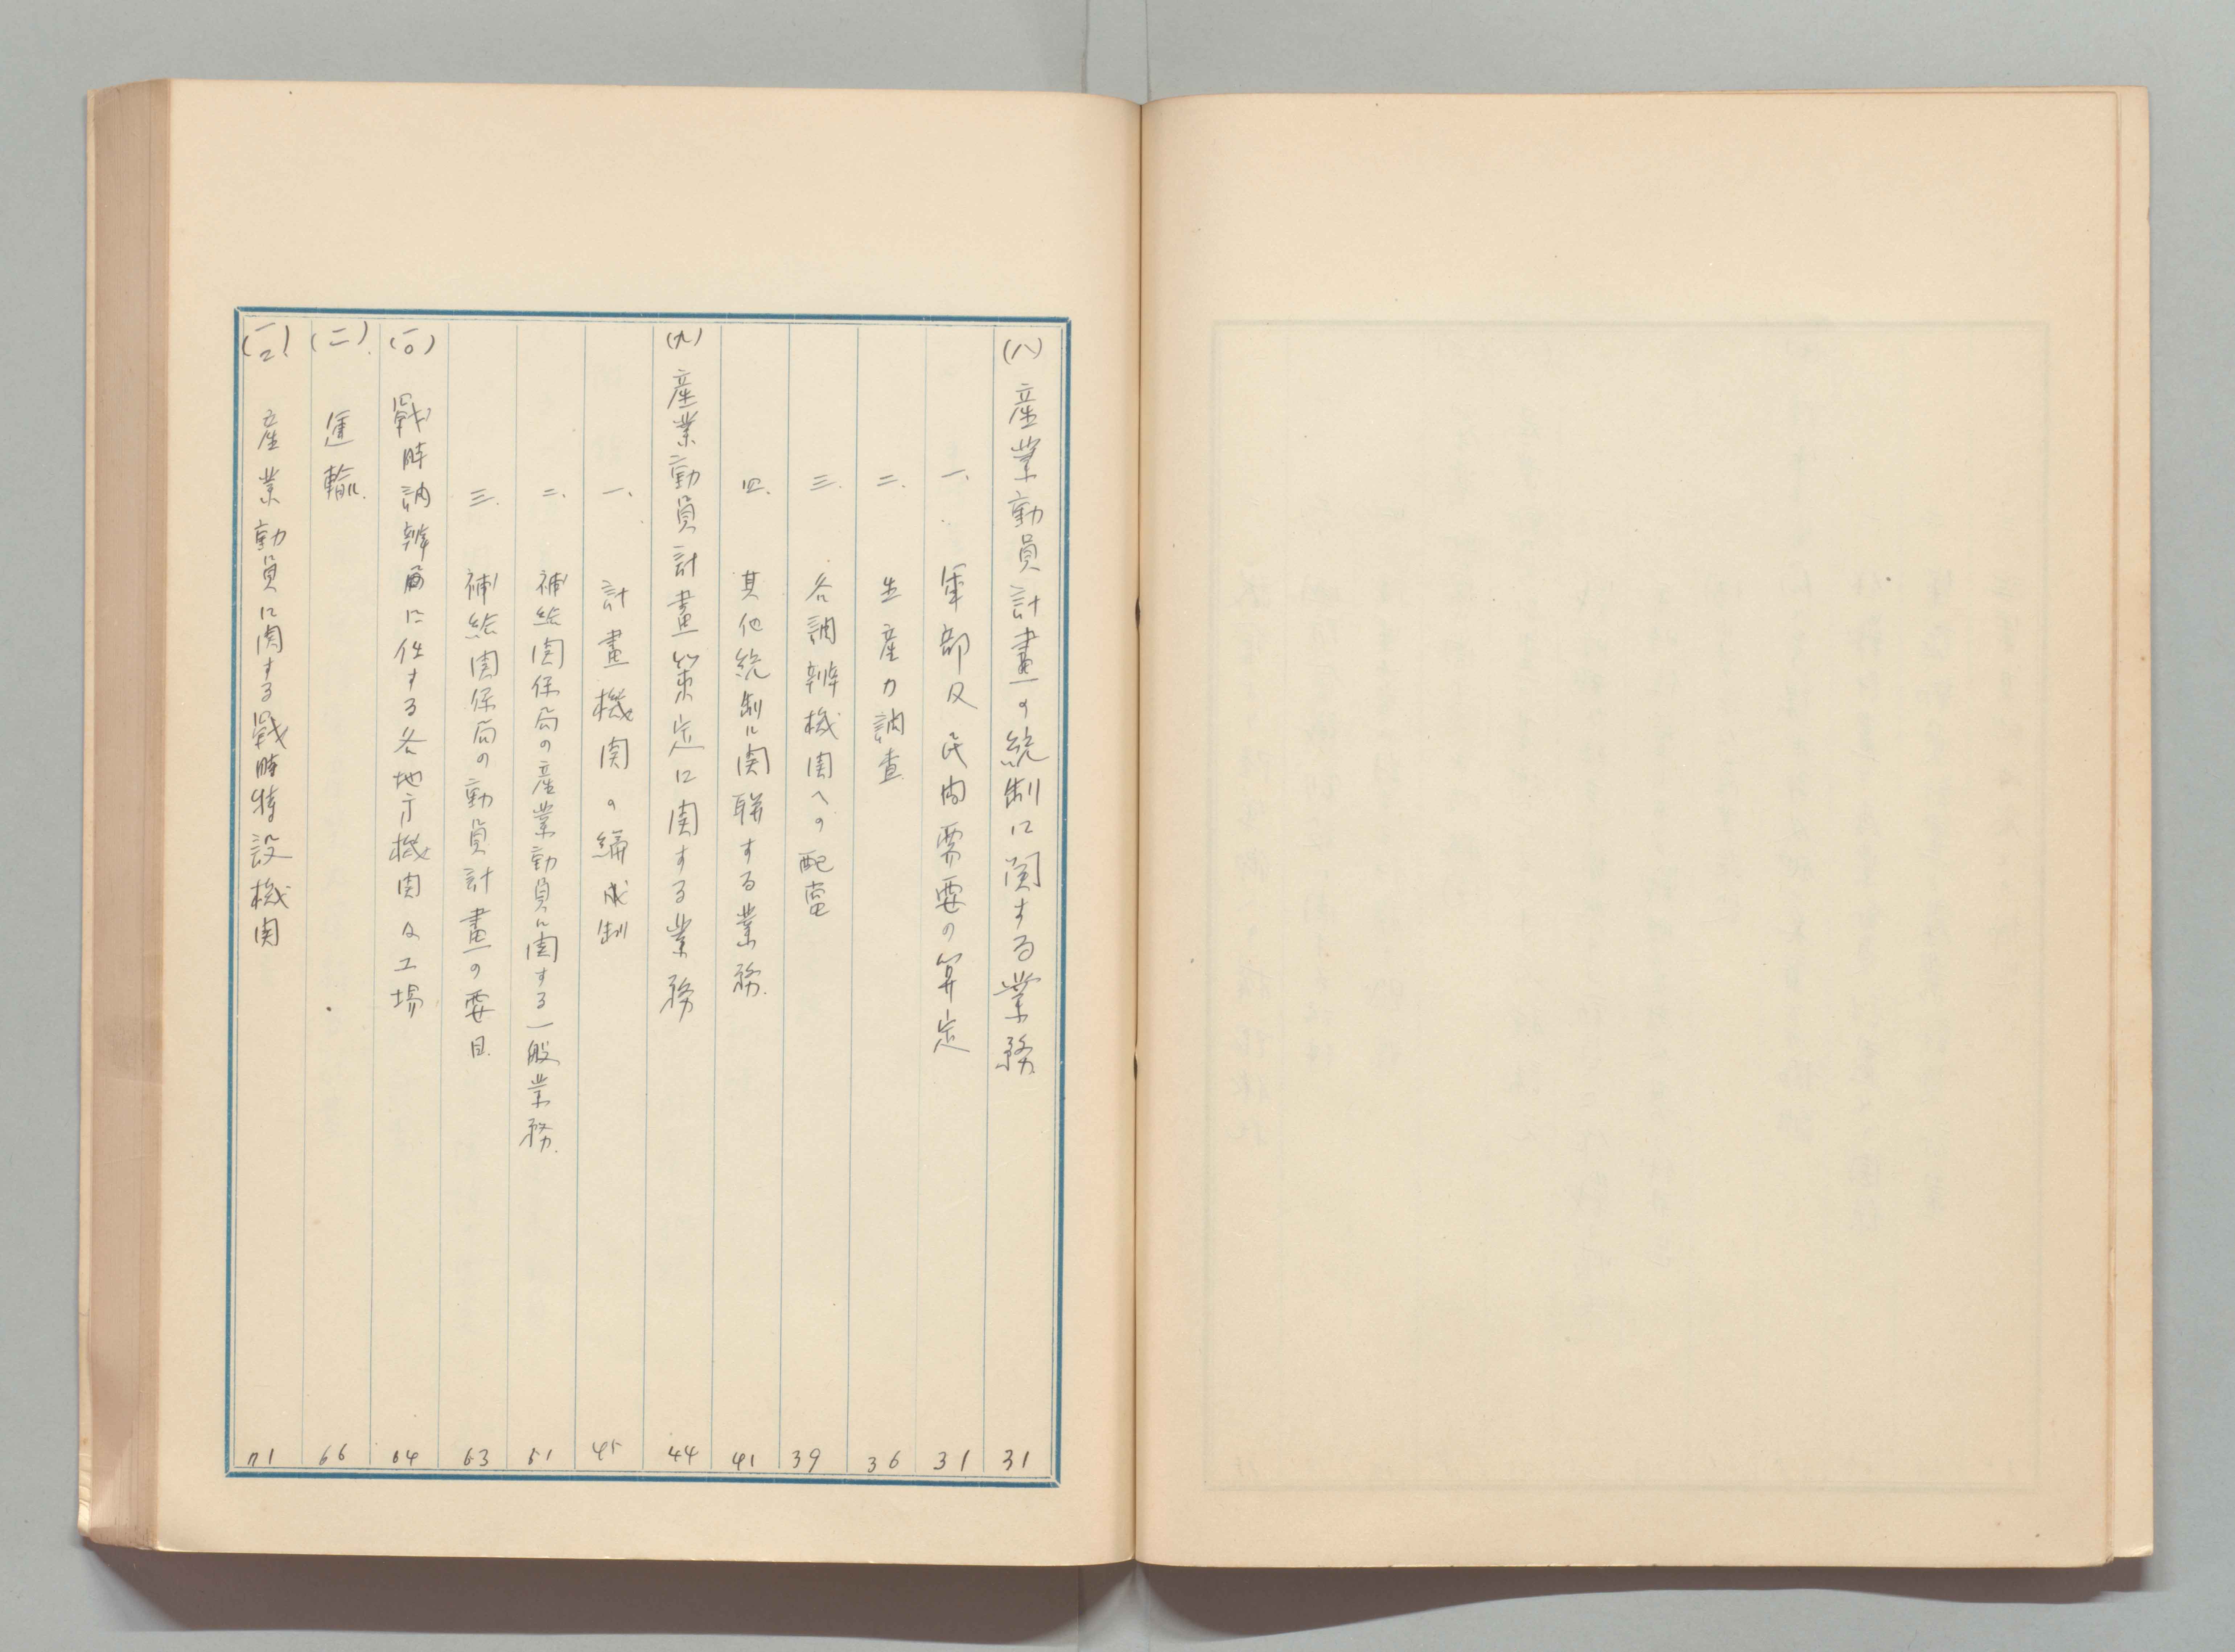 (八) 産業動員計畫の統制に関する業務 31
一、軍部及民間需要の算定 31
二、生産力調査 36
三、各調辨機関への配當 39
四、其他統制に関聯する業務 41
(九) 産業動員計畫策定に関する業務 44
一、計畫機関の編成制 45
二、補給関係局の産業動員に関する一般業務 51
三、補給関係局の動員計畫の要目 63
(一〇) 戰時調辨に任する各地方機関及工場 64
(一一) 運輸 66
(一二) 産業動員に関する戰時特設機関 71